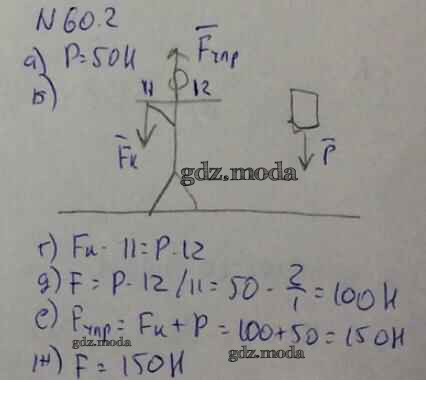 N 60.2
а) P=50Н
б)
F̅упр
11 12
F̅к
P̅
gdz.moda
г) Fк · 11 = P · 12
д) F = P · 12 / 11 = 50 · 2/1 = 100 Н
е) Fупр = Fк + P = 100+50 = 150Н
gdz.moda
ж) F = 150Н
gdz.moda